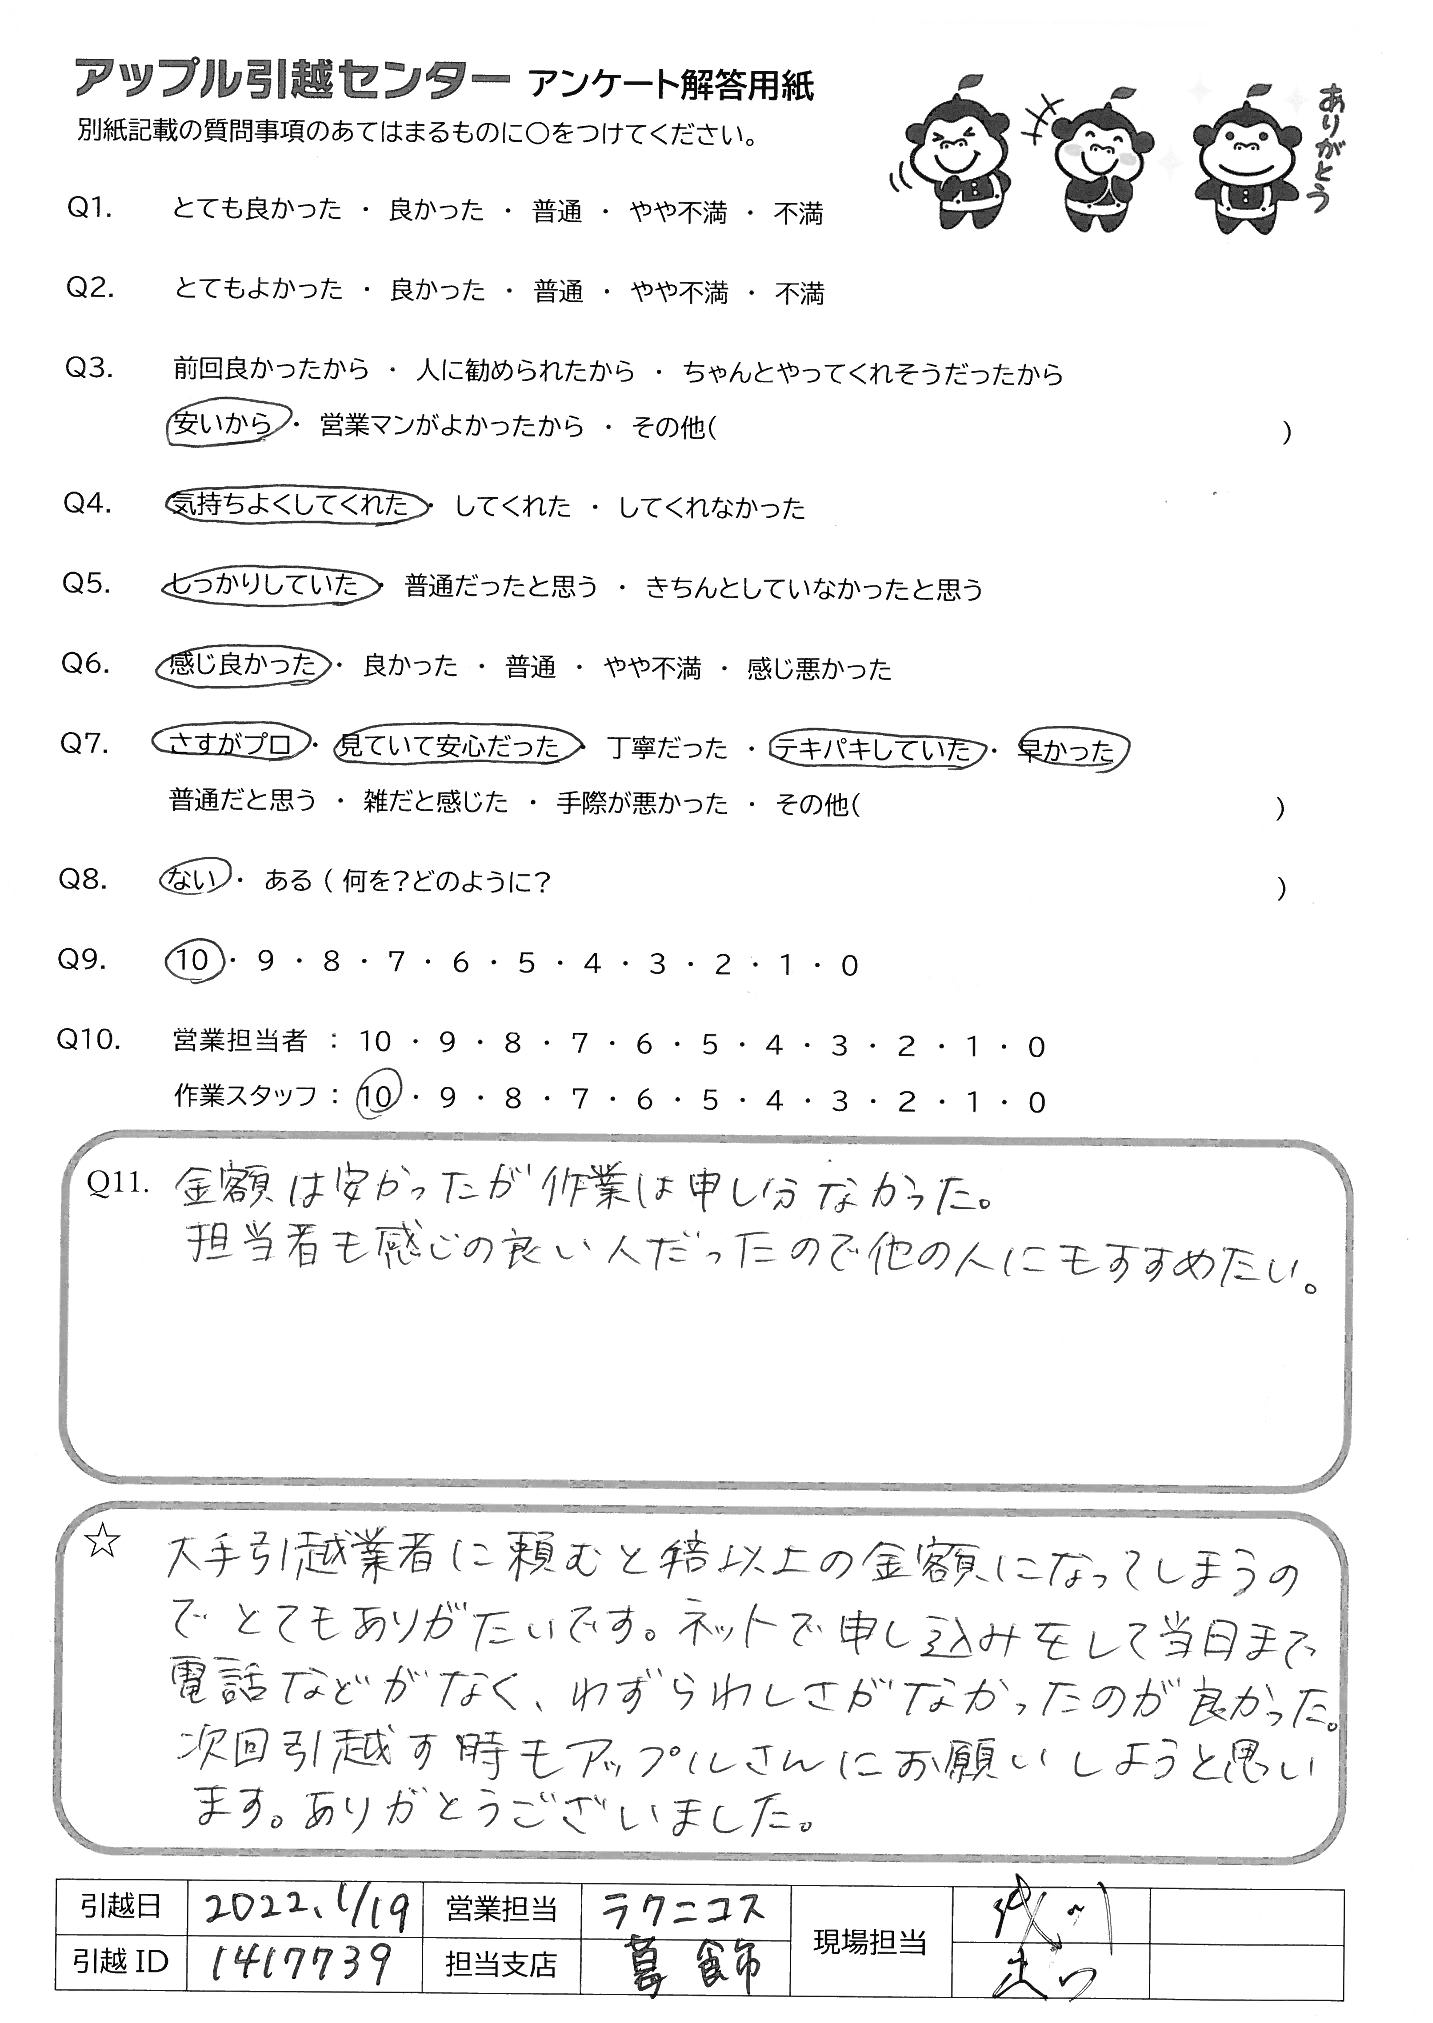 アップル引越センター アンケート解答用紙
別紙記載の質問事項のあてはまるものに○をつけてください。
ありがとう
Q1. とても良かった ・ 良かった ・ 普通 ・ やや不満 ・ 不満
Q2. とてもよかった ・ 良かった ・ 普通 ・ やや不満 ・ 不満
Q3. 前回良かったから ・ 人に勧められたから ・ ちゃんとやってくれそうだったから
安いから ・ 営業マンがよかったから ・ その他( )
Q4. 気持ちよくしてくれた ・ してくれた ・ してくれなかった
Q5. しっかりしていた ・ 普通だったと思う ・ きちんとしていなかったと思う
Q6. 感じ良かった ・ 良かった ・ 普通 ・ やや不満 ・ 感じ悪かった
Q7. さすがプロ ・ 見ていて安心だった ・ 丁寧だった ・ テキパキしていた ・ 早かった
普通だと思う ・ 雑だと感じた ・ 手際が悪かった ・ その他( )
Q8. ない ・ ある ( 何を?どのように? )
Q9. 10 ・ 9 ・ 8 ・ 7 ・ 6 ・ 5 ・ 4 ・ 3 ・ 2 ・ 1 ・ 0
Q10. 営業担当者 : 10 ・ 9 ・ 8 ・ 7 ・ 6 ・ 5 ・ 4 ・ 3 ・ 2 ・ 1 ・ 0
作業スタッフ : 10 ・ 9 ・ 8 ・ 7 ・ 6 ・ 5 ・ 4 ・ 3 ・ 2 ・ 1 ・ 0
Q11. 金額は安かったが作業は申し分なかった。
担当者も感じの良い人だったので他の人にもすすめたい。
☆ 大手引越業者に頼むと倍以上の金額になってしまうの
でとてもありがたいです。ネットで申し込みをして当日まで
電話などがなく、わずらわしさがなかったのが良かった。
次回引越す時もアップルさんにお願いしようと思い
ます。ありがとうございました。
引越日 2022.1/19 営業担当 ラクニコス 現場担当
引越 ID 1417739 担当支店 葛飾